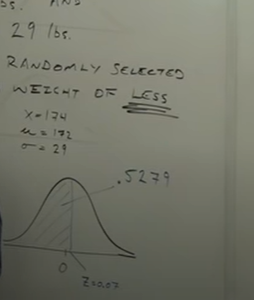 BS. AND
29 lbs.
RANDOMLY SELECTED
WEIGHT OF LESS
X=174
μ=172
σ=29
.5279
0
Z=0.07